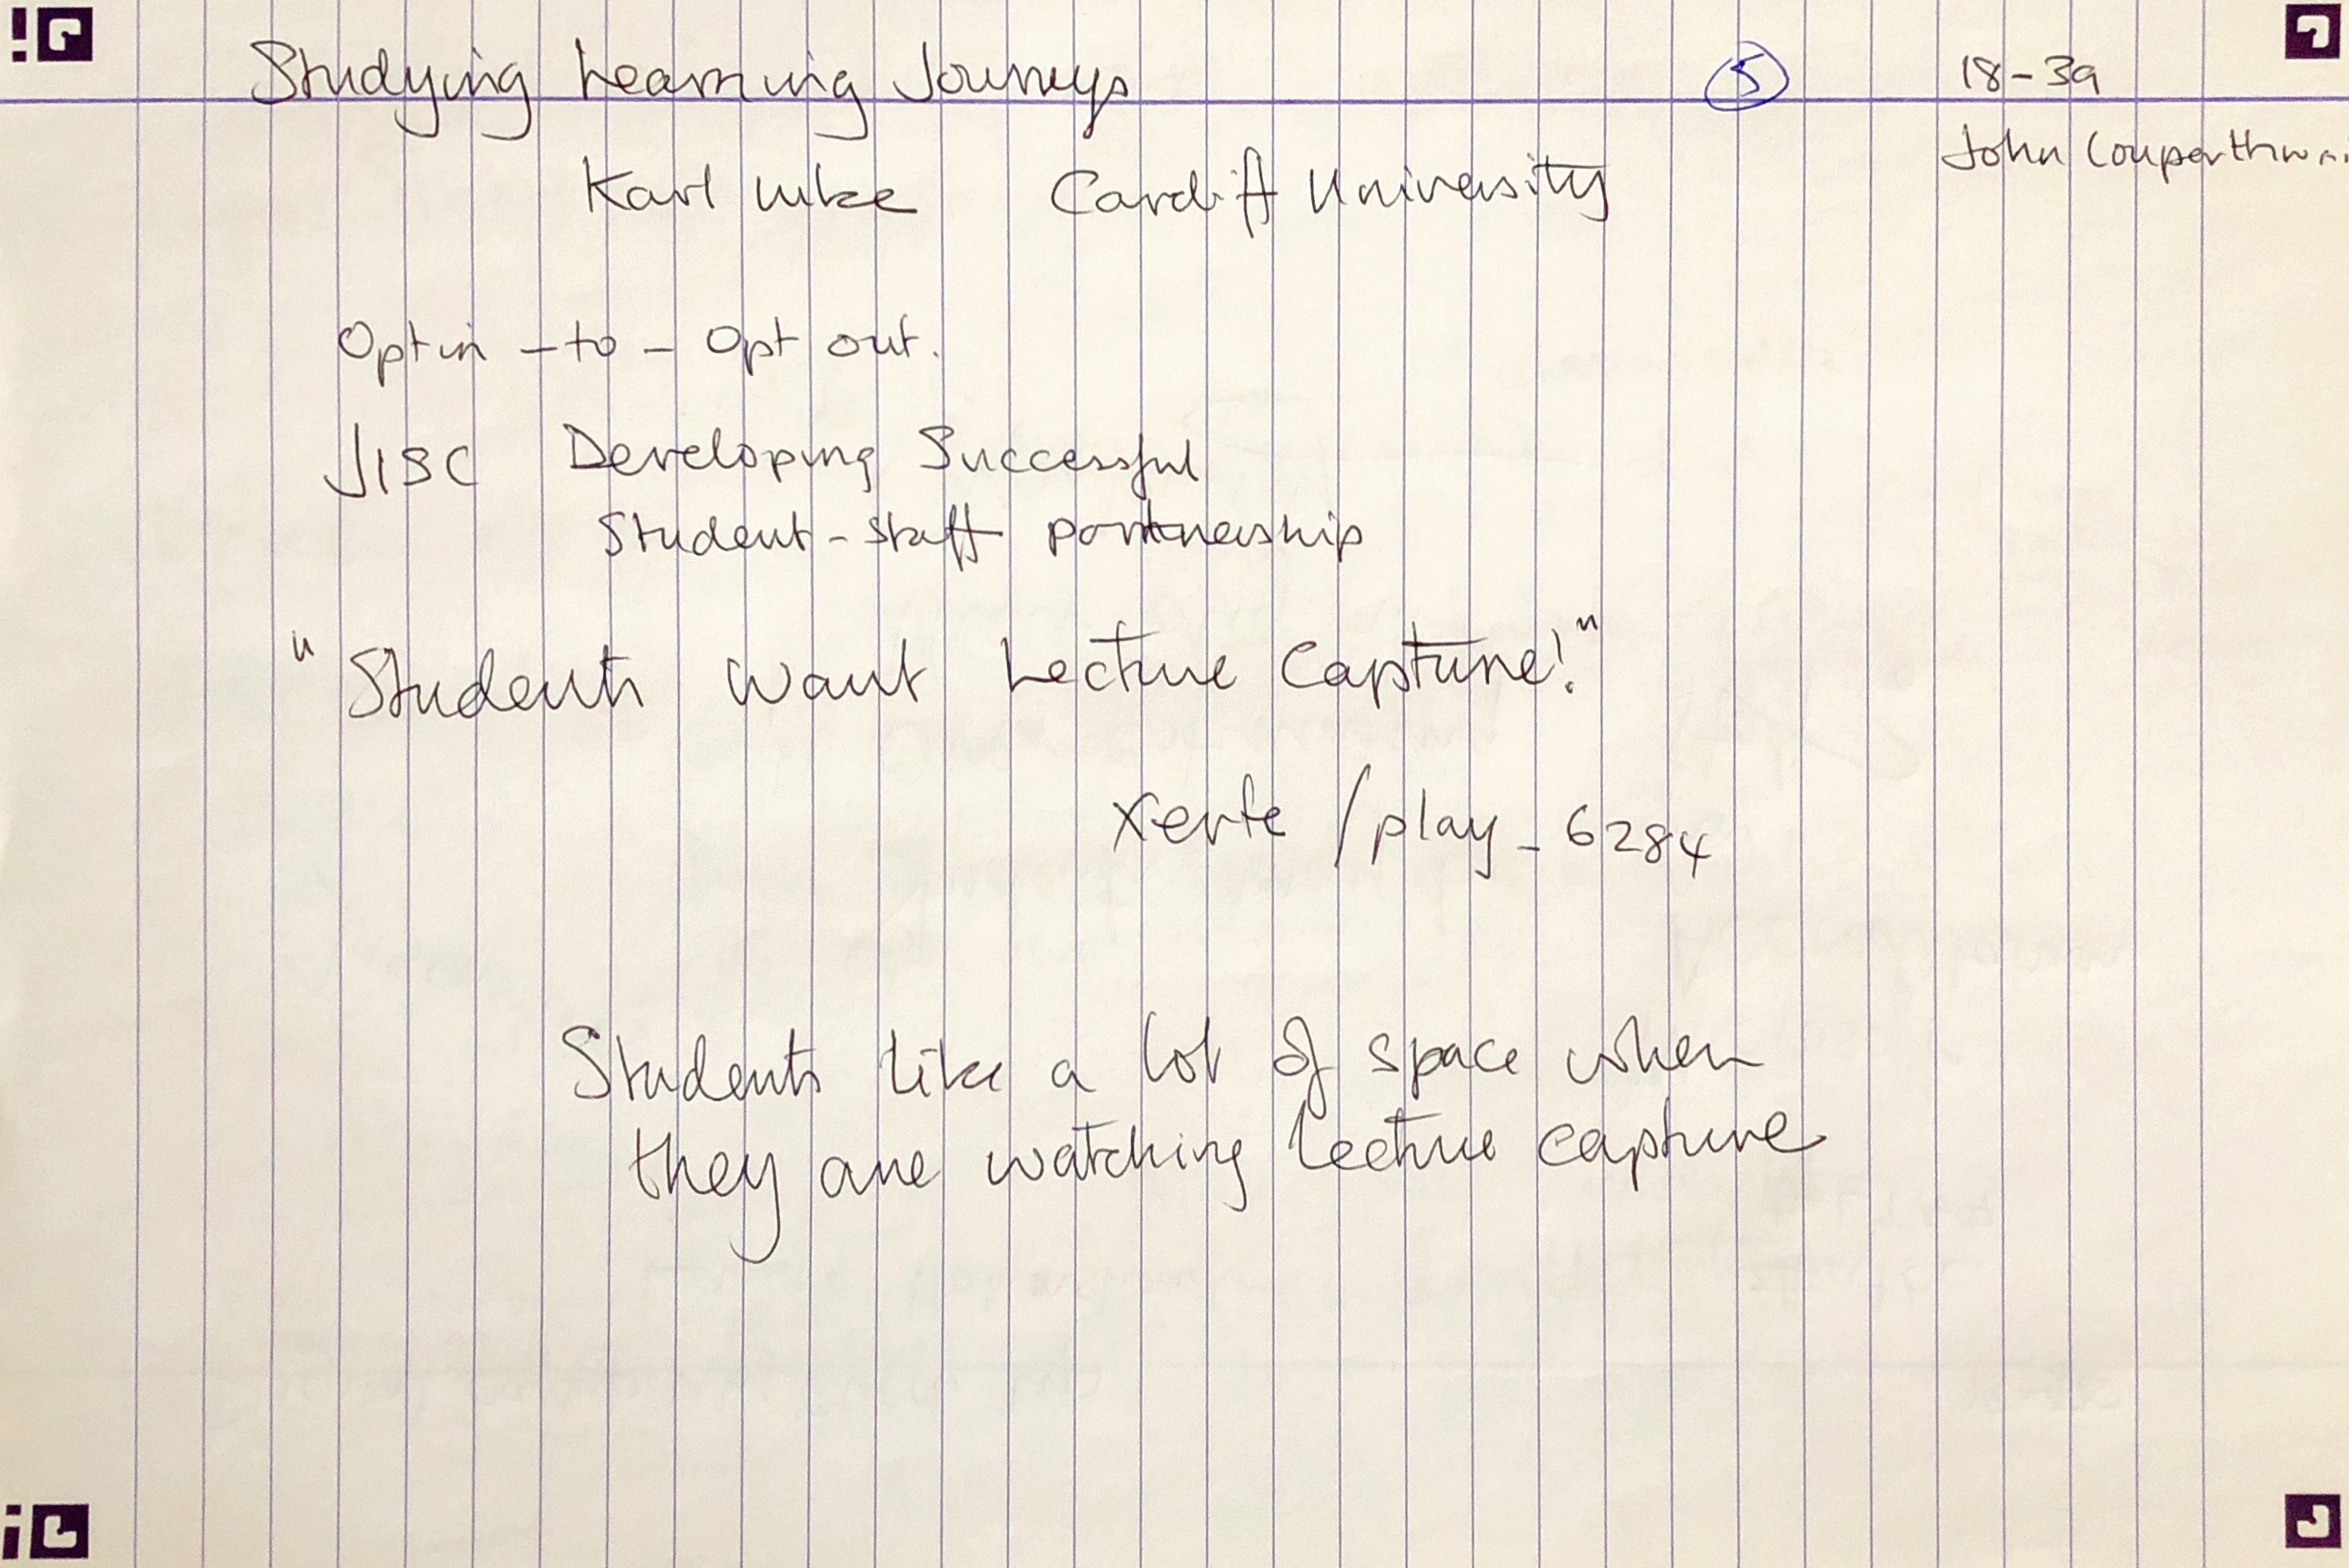 Studying Learning Journeys ⑤ 18-39
John
Karl Luke Cardiff University
Opt in - to - Opt out.
JISC Developing Successful
Student - Staff partnership
"Students want Lecture Capture!"
Xerte /play_6284
Students like a lot of space when
they are watching lecture capture